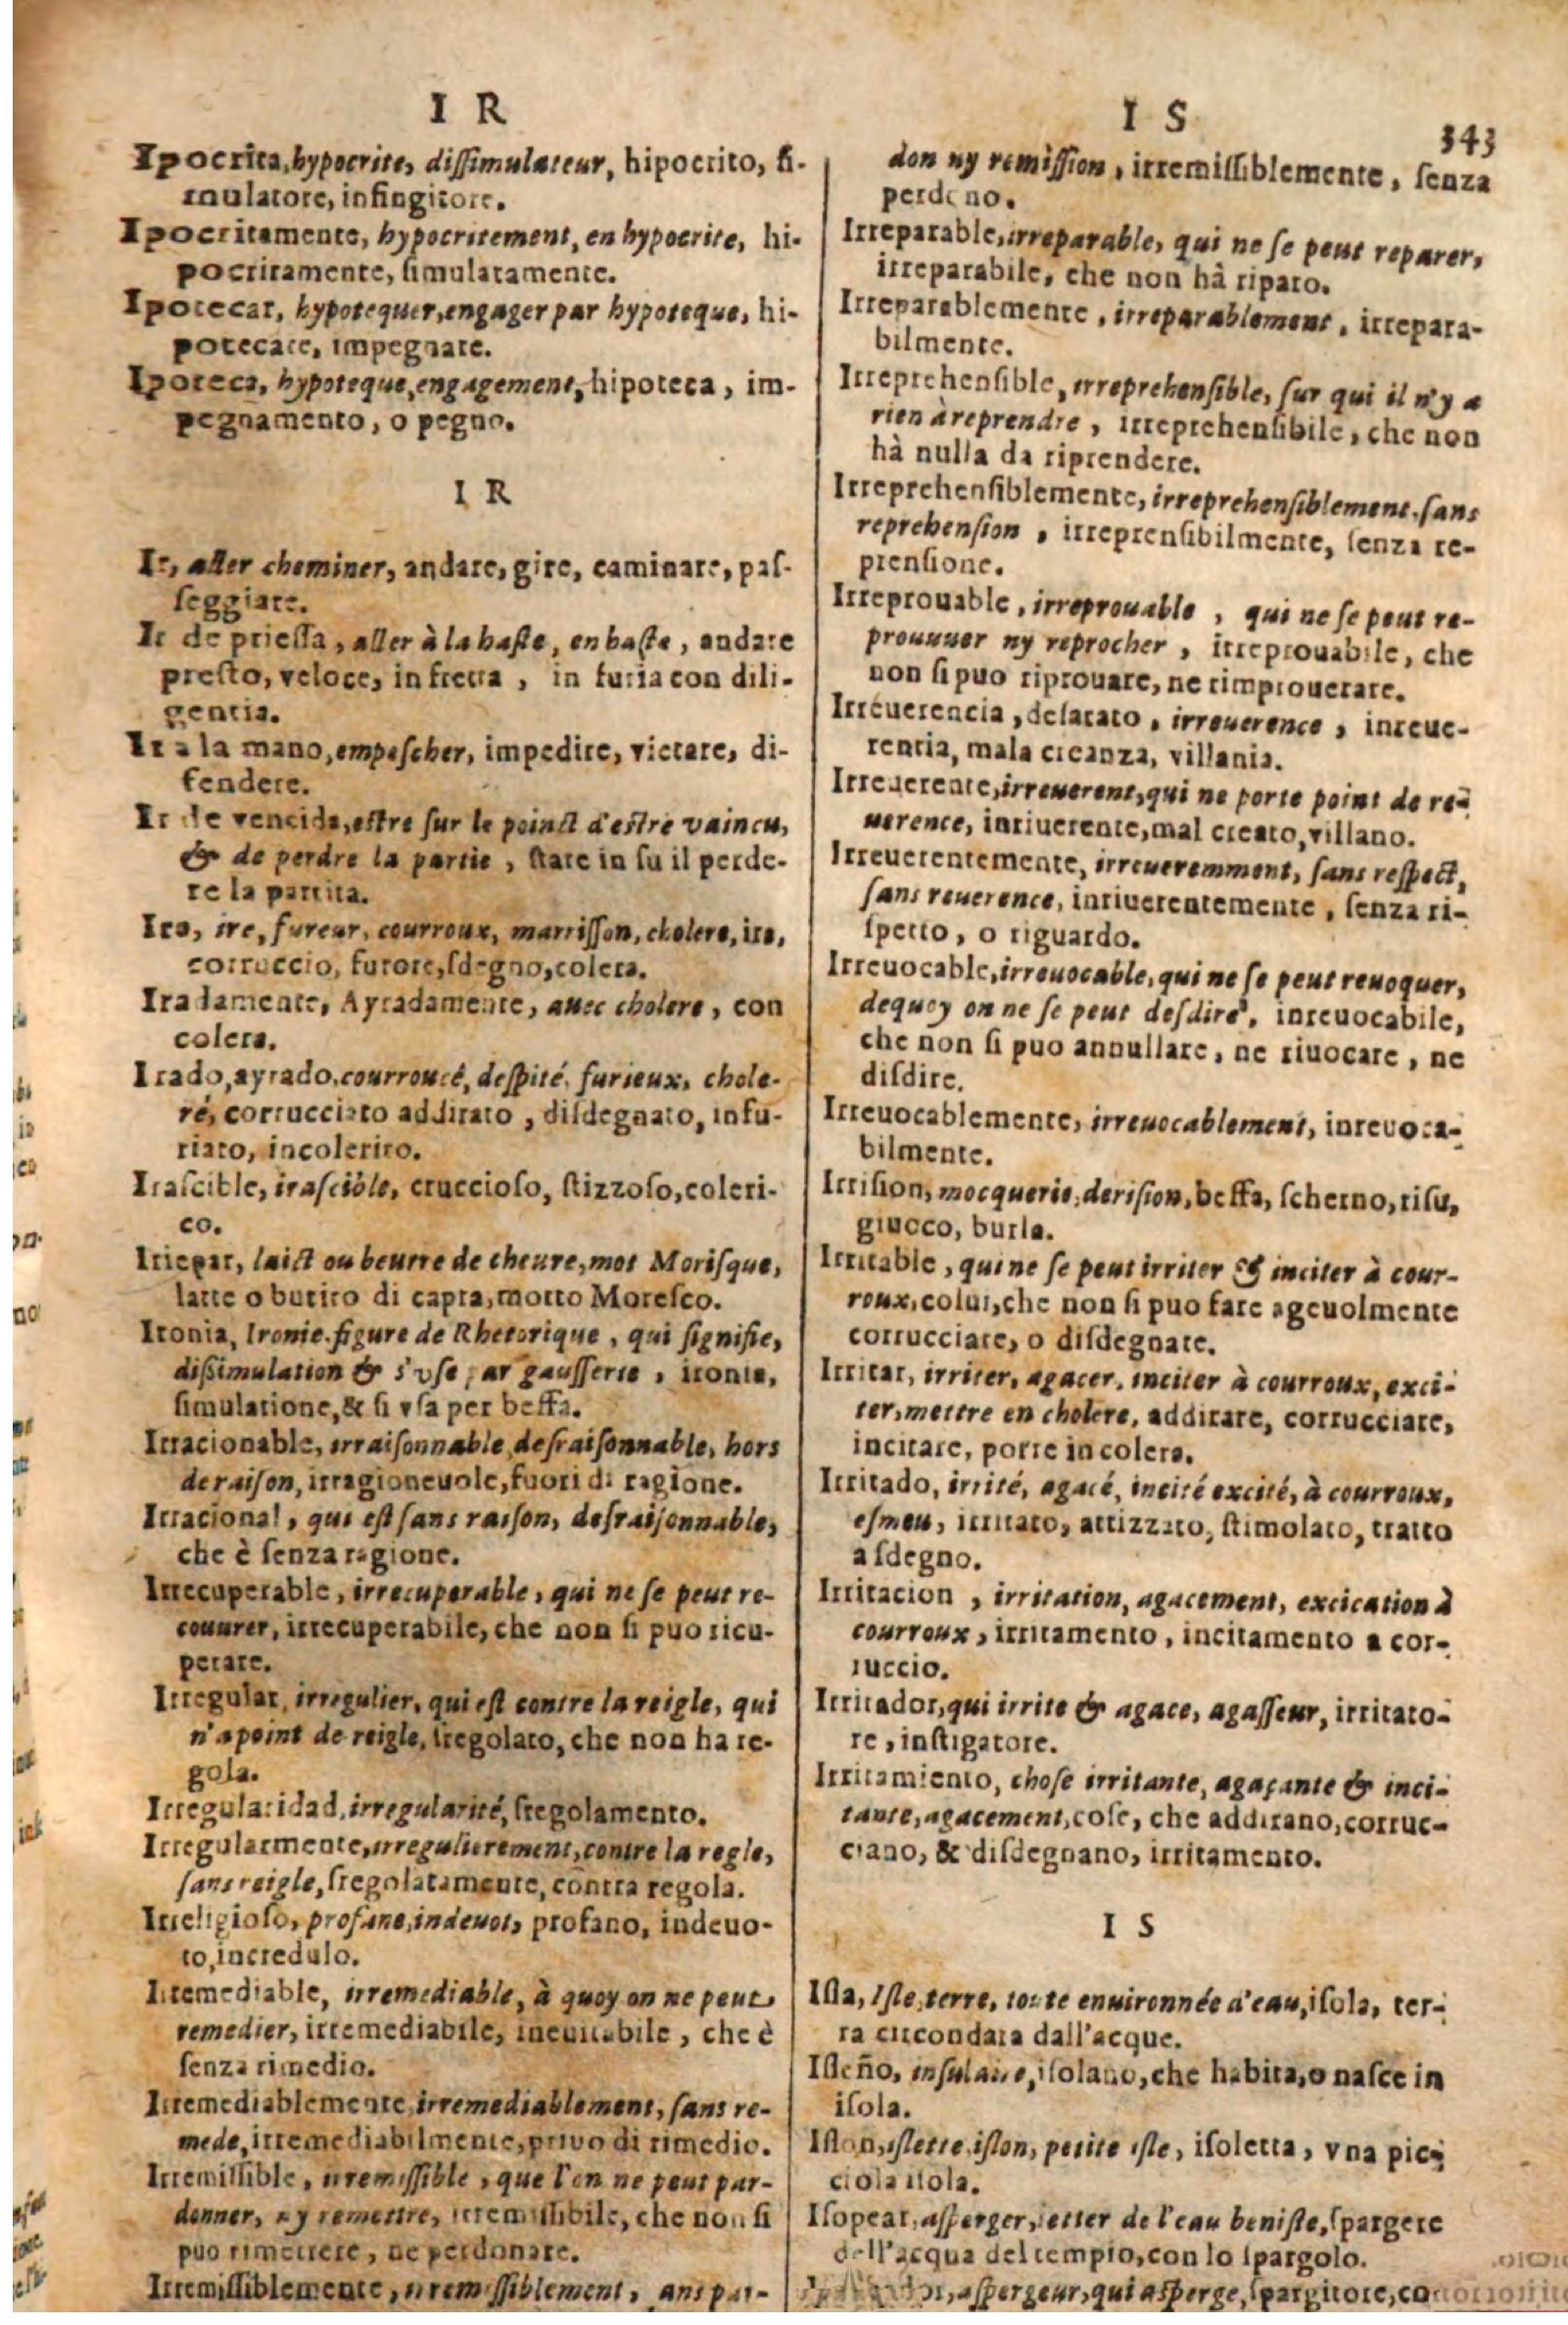 I R
Ipocrita, hypocrite, dissimulateur, hipocrito, si-
mulatore, infingitore.
Ipocritamente, hypocritement, en hypocrite, hi-
pocritamente, simulatamente.
Ipotecar, hypotequer, engager par hypoteque, hi-
potecare, impegnare.
Ipoteca, hypoteque, engagement, hipoteca, im-
pegnamento, o pegno.
I R
Ir, aller cheminer, andare, gire, caminare, pas-
seggiare.
Ir de priessa, aller à la haste, en haste, andare
presto, veloce, in fretta, in furia con dili-
gentia.
Ir a la mano, empescher, impedire, vietare, di-
fendere.
Ir de vencida, estre sur le poinct d'estre vaincu,
& de perdre la partie, stare in su il perde-
re la partita.
Ira, ire, fureur, courroux, marrisson, cholere, ira,
corruccio, furore, sdegno, colera.
Iradamente, Ayradamente, auec cholere, con
colera.
Irado, ayrado, courroucé, despité, furieux, chole-
ré, corrucciato addirato, disdegnato, infu-
riato, incolerito.
Irascible, irascible, cruccioso, stizzoso, coleri-
co.
Iriepar, laict ou beurre de cheure, mot Morisque,
latte o butiro di capra, motto Moresco.
Ironia, Ironie, figure de Rhetorique, qui signifie,
dissimulation & s'vse par gausserie, ironia,
simulatione, & si vsa per beffa.
Irracionable, irraisonnable desraisonnable, hors
de raison, irragioneuole, fuori di ragione.
Irracional, qui est sans raison, desraisonnable,
che è senza ragione.
Irrecuperable, irrecuperable, qui ne se peut re-
couurer, irrecuperabile, che non si puo ricu-
perare.
Irregular, irregulier, qui est contre la reigle, qui
n'a point de reigle, sregolato, che non ha re-
gola.
Irregularidad, irregularité, sregolamento.
Irregularmente, irregulierement, contre la regle,
sans reigle, sregolatamente, contra regola.
Irreligioso, profane, indeuot, profano, indeuo-
to, incredulo.
Irremediable, irremediable, à quoy on ne peut
remedier, irremediabile, ineuitabile, che è
senza rimedio.
Irremediablemente, irremediablement, sans re-
mede, irremediabilmente, priuo di rimedio.
Irremissible, irremissible, que l'on ne peut par-
donner, ny remettre, irremissibile, che non si
puo rimettere, ne perdonare.
Irremissiblemente, irremissiblement, sans par-
I S
343
don ny remission, irremissiblemente, senza
perdono.
Irreparable, irreparable, qui ne se peut reparer,
irreparabile, che non hà riparo.
Irreparablemente, irreparablement, irrepara-
bilmente.
Irreprehensible, irreprehensible, sur qui il n'y a
rien à reprendre, irreprehensibile, che non
hà nulla da riprendere.
Irreprehensiblemente, irreprehensiblement, sans
reprehension, irreprensibilmente, senza re-
prensione.
Irreprouable, irreprouable, qui ne se peut re-
prouuuer ny reprocher, irreprouabile, che
non si puo riprouare, ne rimprouerare.
Irreuerencia, desacato, irreuerence, inreue-
rentia, mala creanza, villania.
Irreuerente, irreuerent, qui ne porte point de re-
uerence, inriuerente, mal creato, villano.
Irreuerentemente, irreueremment, sans respect,
sans reuerence, inriuerentemente, senza ri-
spetto, o riguardo.
Irreuocable, irreuocable, qui ne se peut reuoquer,
dequoy on ne se peut desdire, inreuocabile,
che non si puo annullare, ne riuocare, ne
disdire.
Irreuocablemente, irreuocablement, inreuoca-
bilmente.
Irrision, mocquerie, derision, beffa, scherno, risu,
giuoco, burla.
Irritable, qui ne se peut irriter & inciter à cour-
roux, colui, che non si puo fare ageuolmente
corrucciare, o disdegnare.
Irritar, irriter, agacer, inciter à courroux, exci-
ter, mettre en cholere, addirare, corrucciare,
incitare, porre in colera.
Irritado, irrité, agacé, incité excité, à courroux,
esmeu, irritato, attizzato, stimolato, tratto
a sdegno.
Irritacion, irritation, agacement, excication à
courroux, irritamento, incitamento a cor-
ruccio.
Irritador, qui irrite & agace, agasseur, irritato-
re, instigatore.
Irritamiento, chose irritante, agaçante & inci-
tante, agacement, cose, che addirano, corruc-
ciano, & disdegnano, irritamento.
I S
Isla, Isle, terre, toute enuironnée d'eau, isola, ter-
ra circondata dall'acque.
Isleño, insulaire, isolano, che habita, o nasce in
isola.
Islon, islette, islon, petite isle, isoletta, vna pic-
ciola isola.
Isopear, asperger, ietter de l'eau beniste, spargere
dell'acqua del tempio, con lo spargolo.
aspergeur, qui asperge, spargitore, co